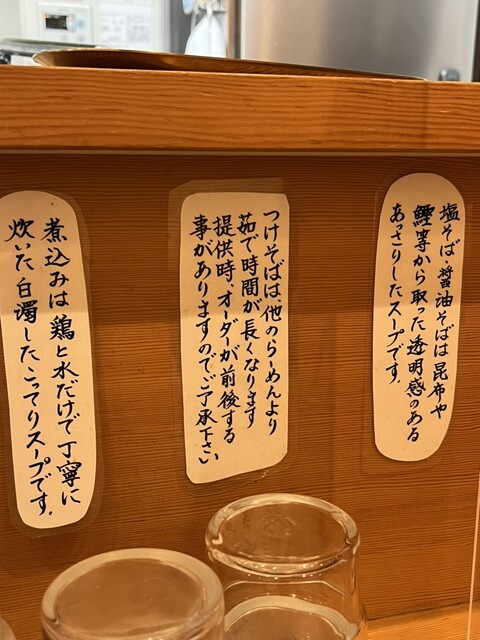 塩そば、醤油そばは昆布や
鰹等から取った透明感のある
あっさりしたスープです。
つけそばは、他のらーめんより
茹で時間が長くなります
提供時、オーダーが前後する
事がありますのでご了承下さい
煮込みは鶏と水だけで丁寧に
炊いた白濁したこってりスープです。